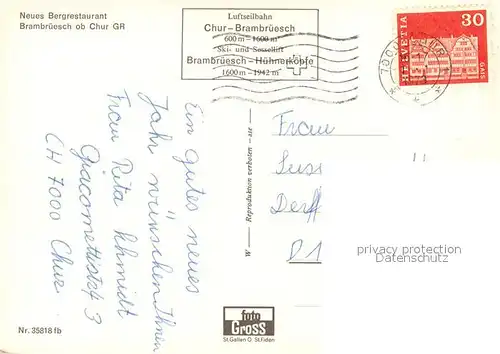 Neues Bergrestaurant
Brambrüesch ob Chur GR
Luftseilbahn
Chur – Brambrüesch
600 m – 1600 m
Ski- und Sessellift
Brambrüesch – Hühnerköpfe
1600 m – 1942 m
HELVETIA
30
GAIS
7000 CHUR 1
Ein gutes neues
Jahr wünschen Ihnen
Frau Rita Schmidt
Giacomettistr 3
CH 7000 Chur
W — Reproduktion verboten — sse
Frau
privacy protection
foto
Gross
St. Gallen O. St. Fiden
Nr. 35818 fb